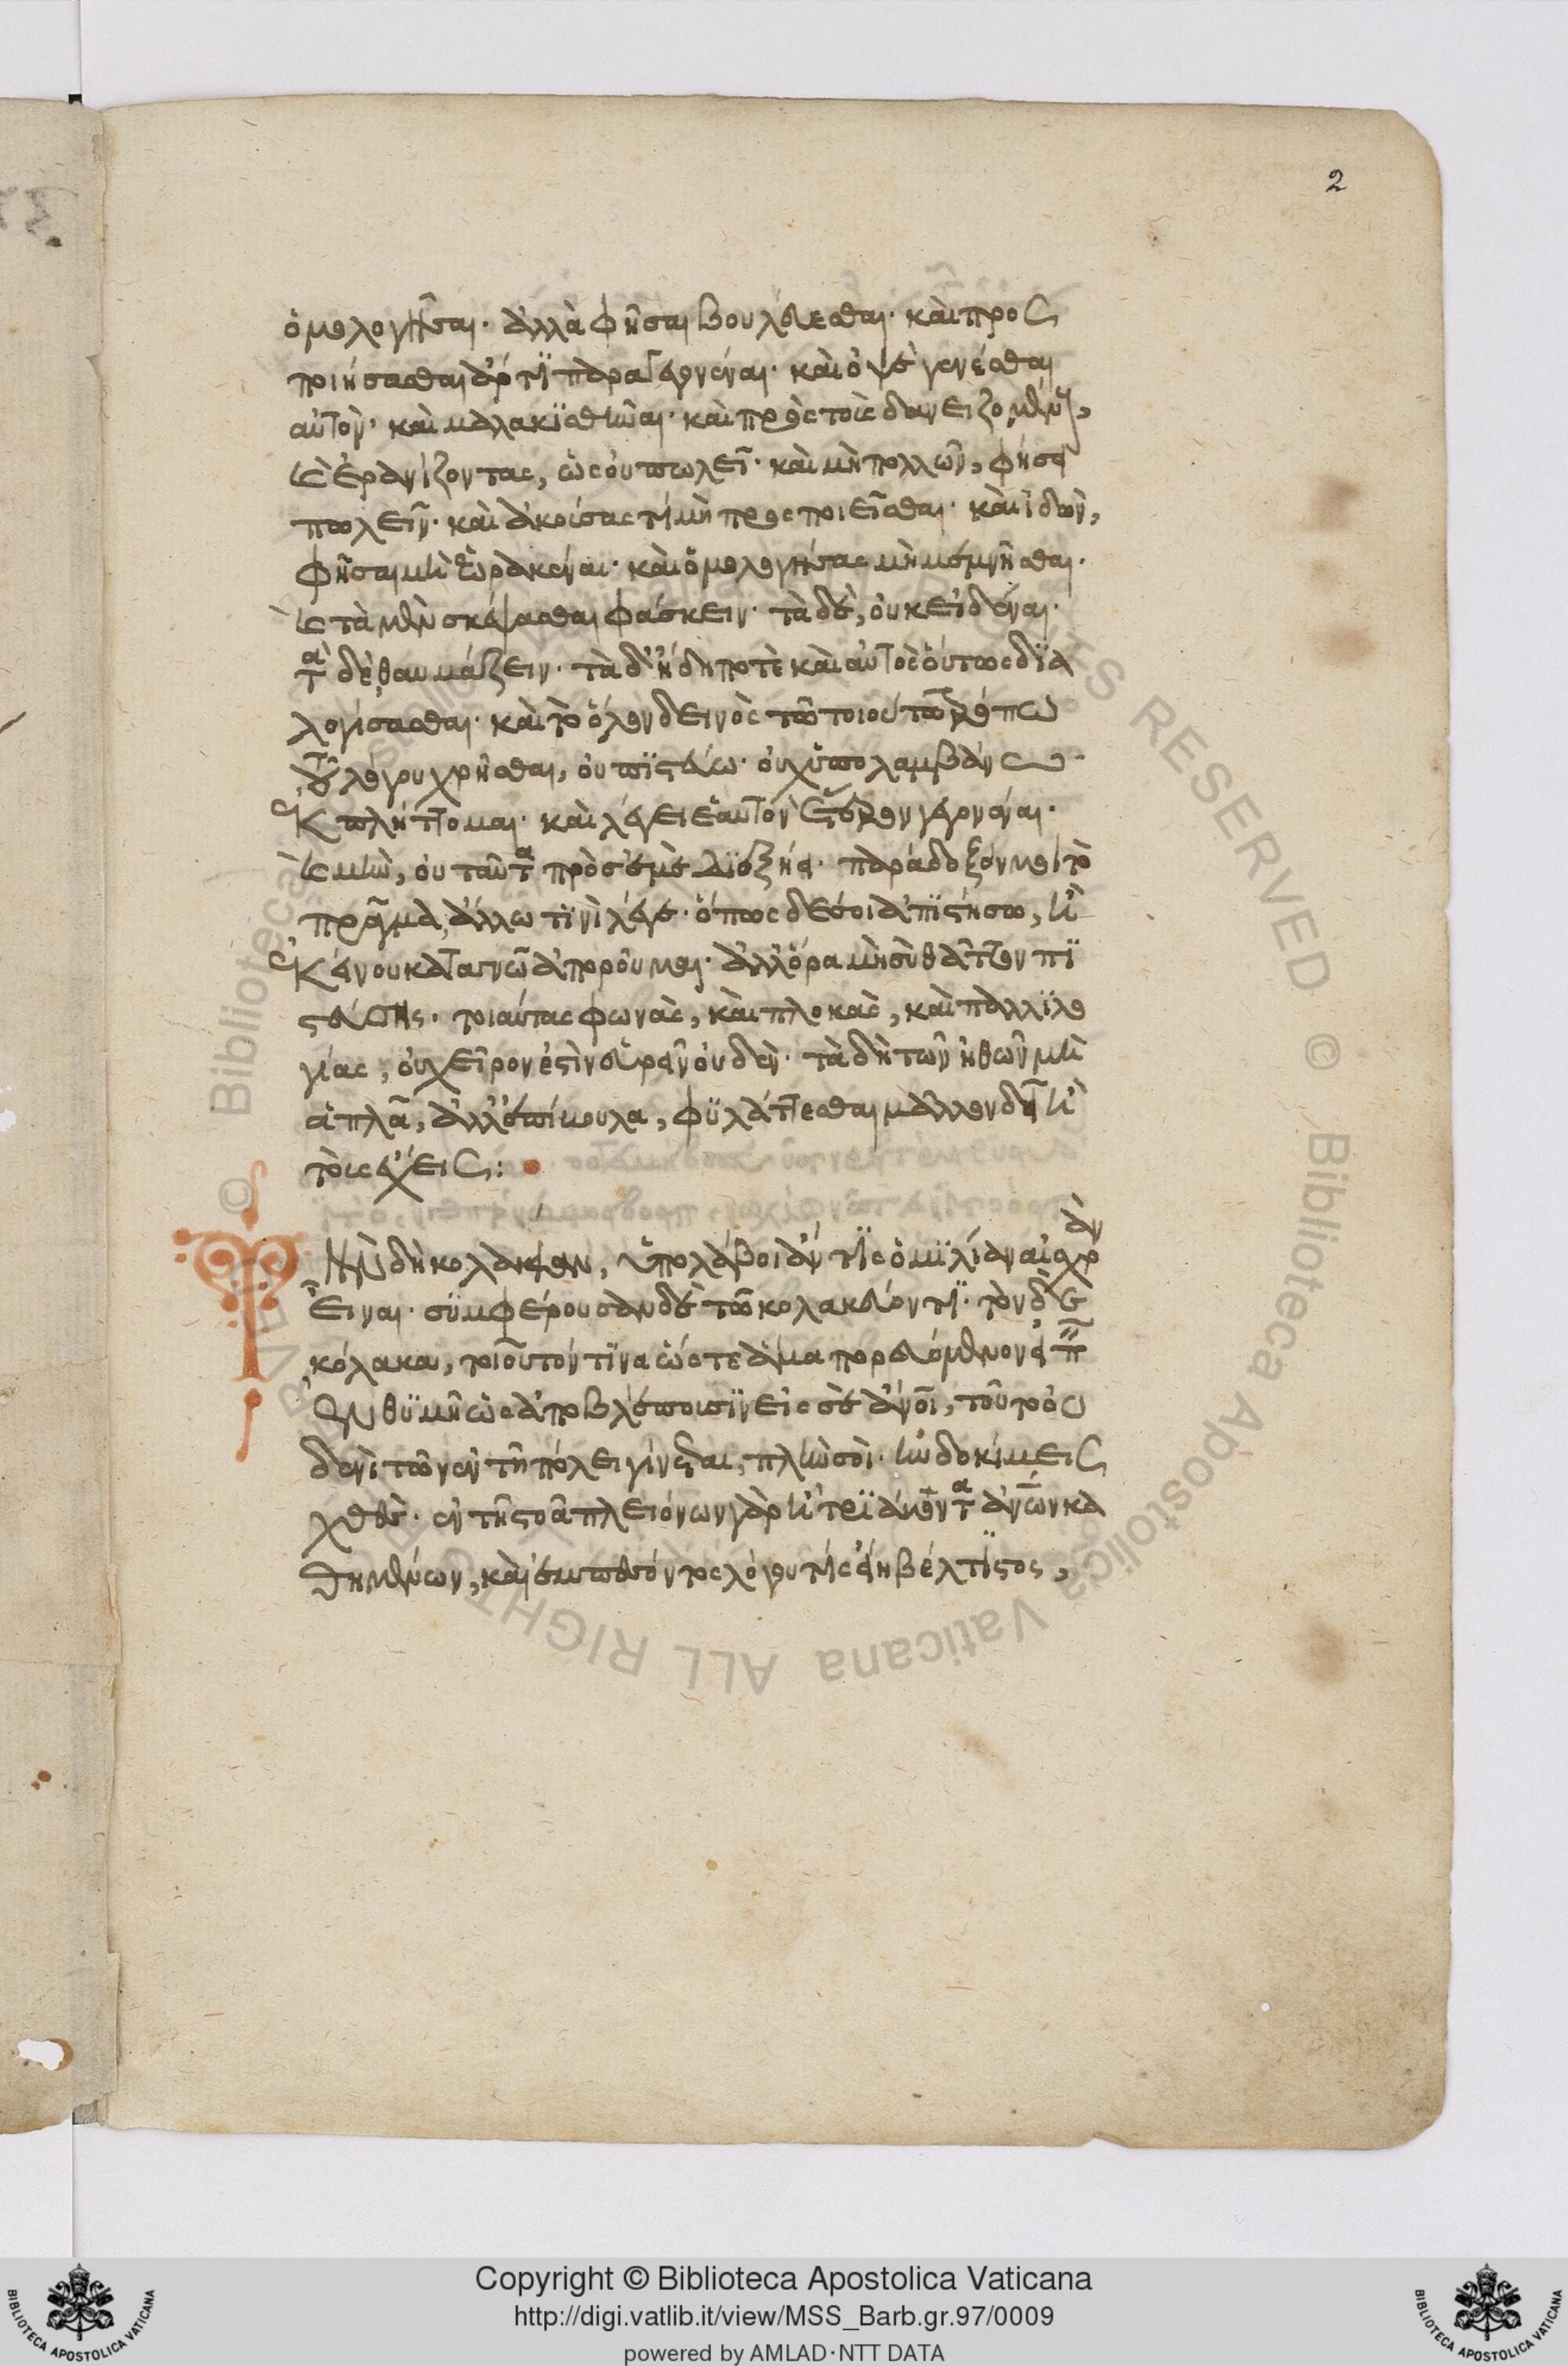 2
ὁμολογῆσαι· ἀλλὰ φῆσαι βουλεύεσθαι· καὶ προς
ποιήσασθαι ἄρτι παραγεγονέναι· καὶ ὀψὲ γενέσθαι
αὐτὸν· καὶ μαλακισθῆναι· καὶ πρὸς τοὺς δανειζομένους,
καὶ ἐρανίζοντας, ὡς οὐ πωλεῖ· καὶ μὴ πολλῶν, φῆσαι
πωλεῖν· καὶ ἀκούσας τί μὴ προσποιεῖσθαι· καὶ ἰδὼν,
φῆσαι μὴ ἑωρακέναι· καὶ ὁμολογήσας μὴ μεμνῆσθαι·
καὶ τὰ μὲν σκέψασθαι φάσκειν· τὰ δὲ, οὐκ εἰδέναι·
τὰ δὲ θαυμάζειν· τὰ δ' ἤδη ποτὲ καὶ αὐτὸς οὕτως δια
λογίσασθαι· καὶ τὸ ὅλον δεινὸς τῶ τοιούτω τρόπω
τοῦ λόγου χρῆσθαι, οὐ πιστεύω· οὐχ ὑπολαμβάνω·
ἐκπλήττομαι· καὶ λέγει ἑαυτὸν ἕτερον γεγονέναι·
καὶ μὴν, οὐ ταῦτα πρὸς ἐμὲ διεξῄει· παράδοξόν μοι τὸ
πρᾶγμα, ἄλλω τινὶ λέγε· ὅπως δὲ σοὶ ἀπιστήσω, ἢ
ἐκείνου καταγνῶ ἀποροῦμαι· ἀλλ' ὅρα μὴ σὺ θᾶττον πι
στεύεις· τοιαύτας φωνὰς, καὶ πλοκὰς, καὶ παλλιλο
γίας, οὐ χεῖρον ἐστὶν εὑρεῖν οὐδὲν· τὰ δὴ τῶν ἠθῶν μὴ
ἁπλᾶ, ἀλλ' ἐπίβουλα, φυλάττεσθαι μᾶλλον δεῖ ἢ
τοὺς ἔχεις:
Τὴν δὲ κολακείαν, ὑπολάβοι ἄν τις ὁμιλίαν αἰσχρὰν
εἶναι· συμφέρουσαν δὲ τῶ κολακεύοντι· τὸν δὲ
κόλακα, τοιοῦτόν τινα ὥστε ἅμα πορευόμενον εἰπεῖν
ἐνθυμῇ ὡς ἀποβλέπουσιν εἰς σὲ ἄνοι, τοῦτο οὐ
δενὶ τῶν ἐν τῇ πόλει γίνεται, πλὴν σοὶ· ηὐδοκίμεις
χθὲς ἐν τῇ στοᾶ πλειόνων γὰρ ἢ τριάκοντα ἀνῶν κα
θημένων, καὶ ἐμπεσόντος λόγου τίς εἴη βέλτιστος,
Copyright © Biblioteca Apostolica Vaticana
http://digi.vatlib.it/view/MSS_Barb.gr.97/0009
powered by AMLAD·NTT DATA